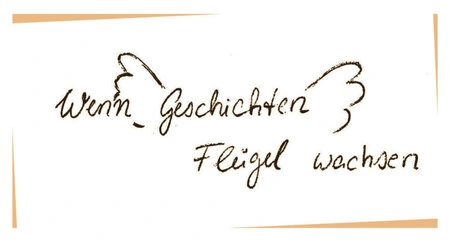 Wenn Geschichten
Flügel wachsen